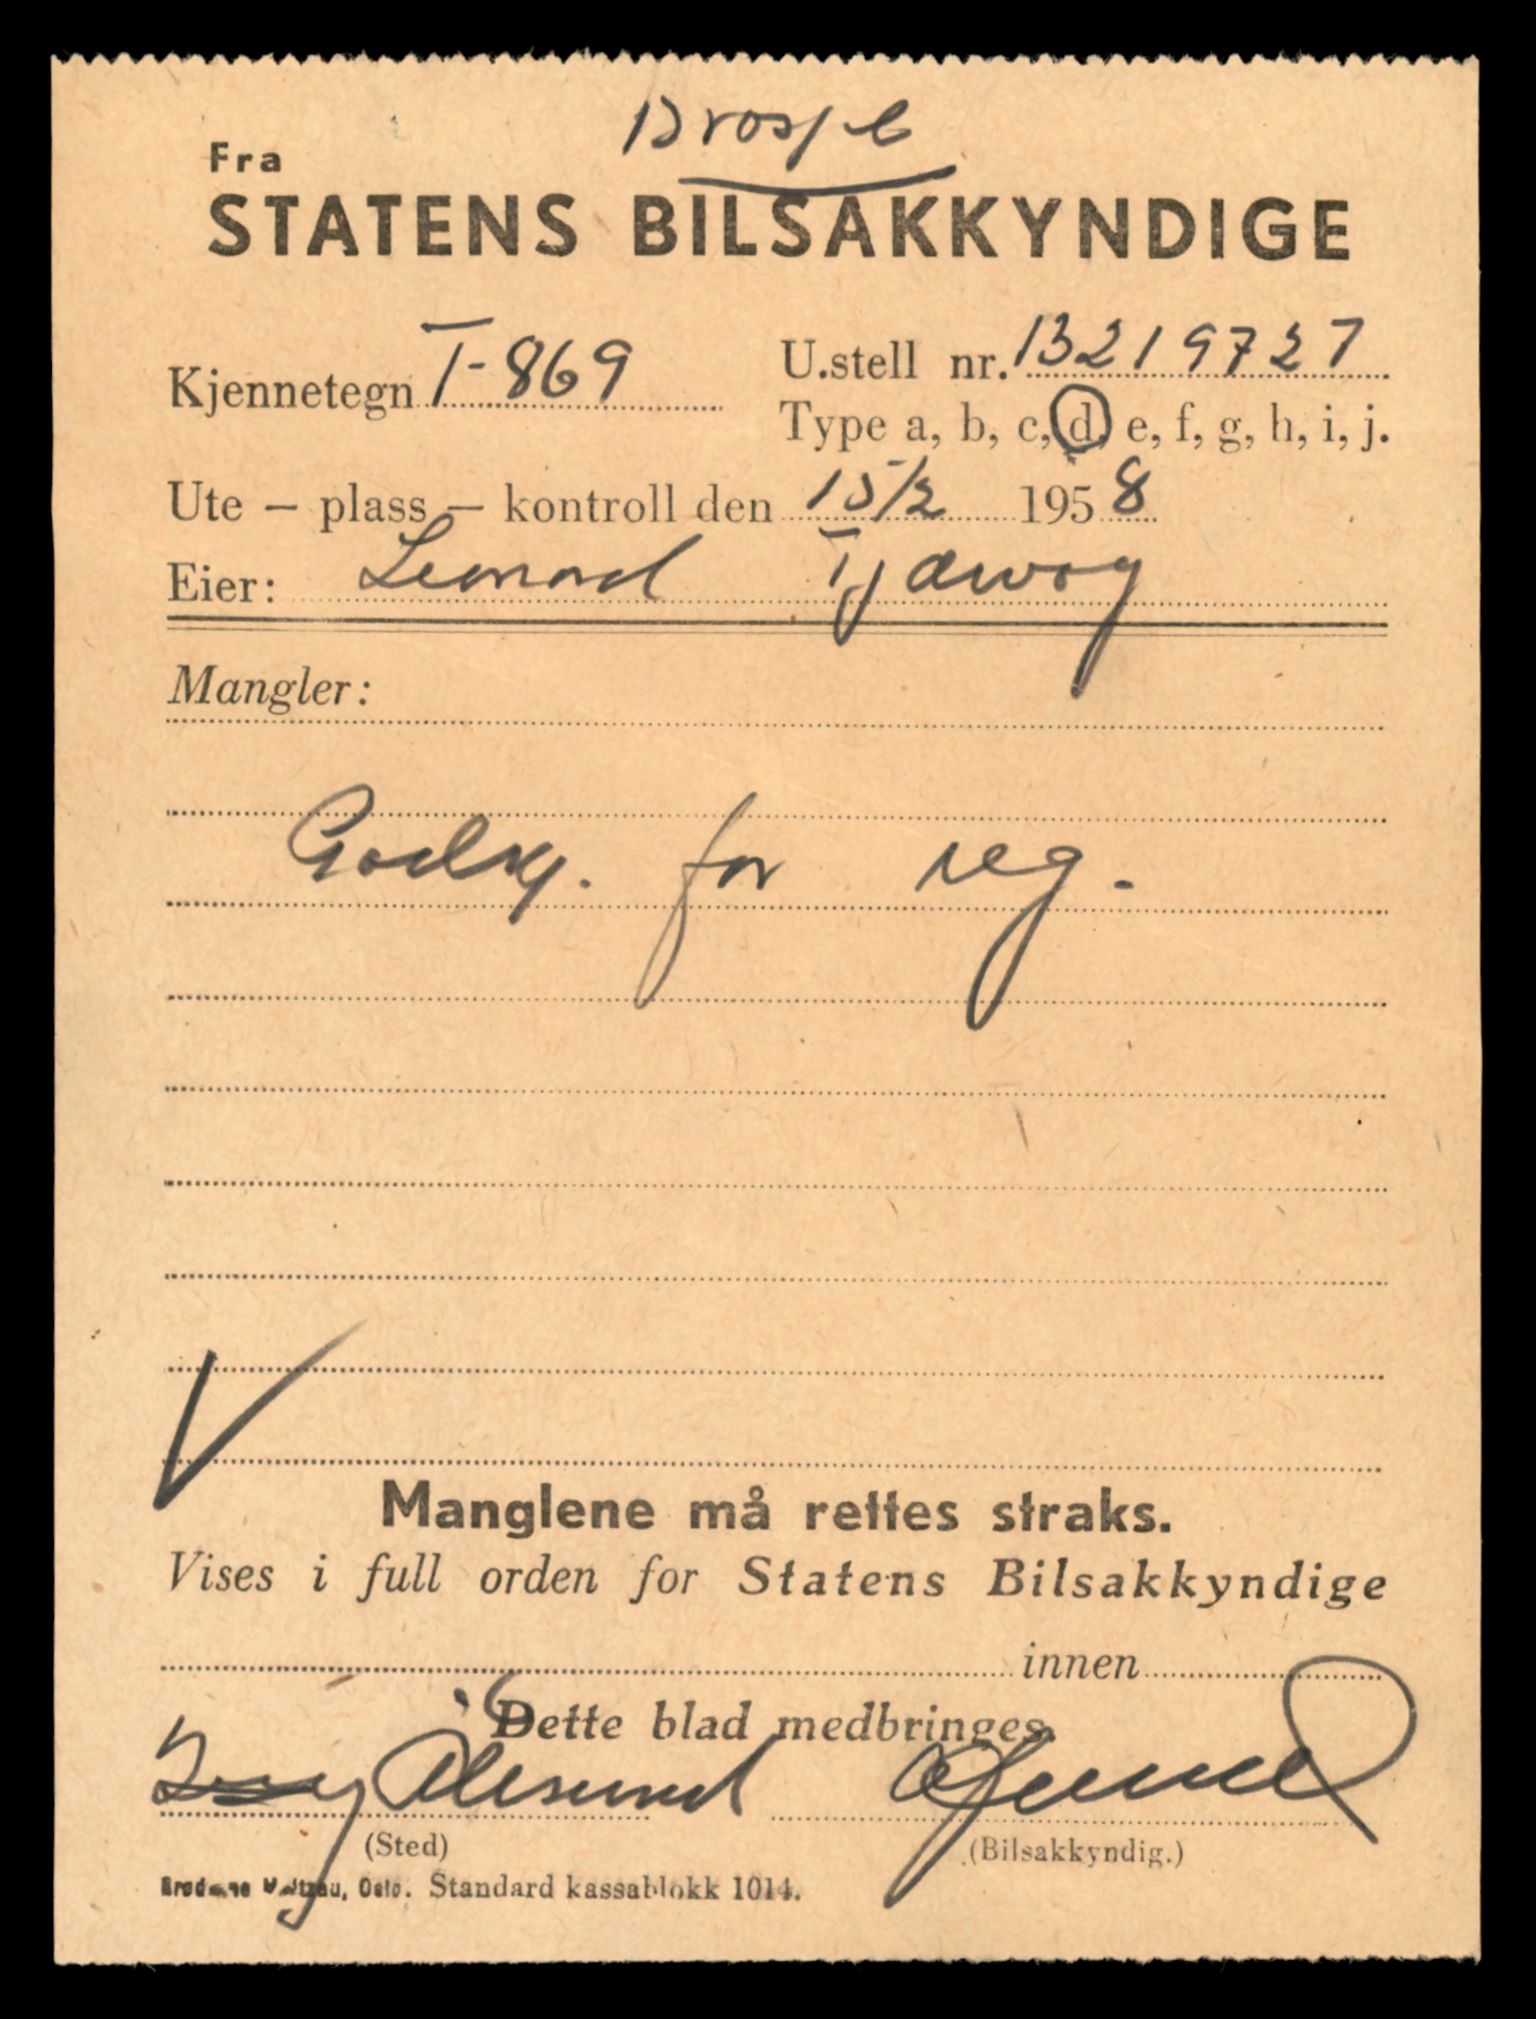 Drosje
Fra
STATENS BILSAKKYNDIGE
Kjennetegn T-869
U.stell nr. 13219727
Type a, b, c, d, e, f, g, h, i, j.
Ute – plass – kontroll den 15/2 1958
Eier: Leonard Tjærvåg
Mangler:
Godkj. for reg.
Manglene må rettes straks.
Vises i full orden for Statens Bilsakkyndige
innen
Dette blad medbringes.
Ålesund
(Sted) (Bilsakkyndig.)
Brødrene Maltzau, Oslo. Standard kassablokk 1014.